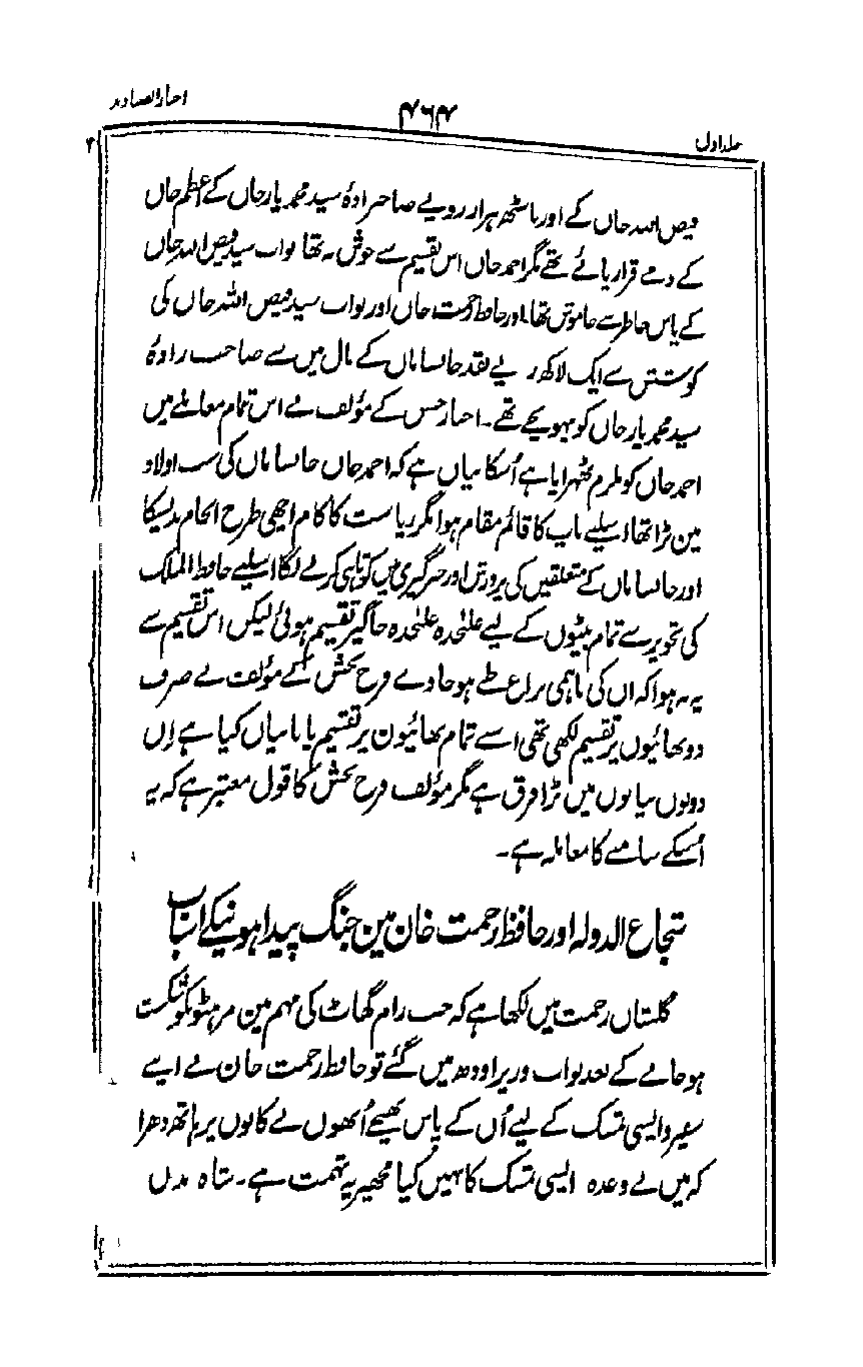 اخبار الصنادید
۴۶۴
جلد اول
فیض اللہ خاں کے اور باسٹھ ہزار روپے صاحبزادۂ سید محمد یار خاں کے اعظم خاں
کے ذمے قرار پائے تھے مگر احمد خاں اس تقسیم سے خوش نہ تھا نواب سید فیض اللہ خاں
کے پاس خاطر سے خاموش تھا۔ اور حافظ رحمت خاں اور نواب سید فیض اللہ خاں کی
کوشش سے ایک لاکھ روپے نقد خانساماں کے مال میں سے صاحب زادۂ
سید محمد یار خاں کو پہونچے تھے۔ اخبار حسن کے مؤلف نے اس تمام معاملے میں
احمد خاں کو ملزم ٹھہرایا ہے اُسکا بیاں ہے کہ احمد خاں خانساماں کی سب اولاد
مین بڑا تھا اسلیے باپ کا قائم مقام ہوا مگر ریاست کا کام اچھی طرح انجام ندیسکا
اور خانساماں کے متعلقین کی پرورش اور خبر گیری میں کوتاہی کرنے لگا اسلیے حافظ الملک
کی تجویز سے تمام بیٹوں کے لیے علیٰحدہ علیٰحدہ جاگیر تقسیم ہوئی لیکن اس تقسیم سے
یہ نہ ہوا کہ اُن کی باہمی نزاع طے ہو جاوے فرح بخش کے مؤلف نے صرف
دو بھائیوں پر تقسیم لکھی تھی اسے تمام بھائیون پر تقسیم پانا بیاں کیا ہے اِن
دونوں بیانوں میں بڑا فرق ہے مگر مؤلف فرح بخش کا قول معتبر ہے کہ یہ
اُسکے سامنے کا معاملہ ہے۔
شجاع الدولہ اور حافظ رحمت خان مین جنگ پیدا ہونیکے اسباب
گلستاں رحمت میں لکھا ہے کہ جب رام گھاٹ کی مہم مین مرہٹونکو شکست
ہو جانے کے بعد نواب وزیر اودھ میں گئے تو حافظ رحمت خان نے اپنے
سفیر واپسی تمسک کے لیے اُن کے پاس بھیجے اُنھوں نے کانوں پر ہاتھ دھرا
کہ میں نے وعدہ واپسی تمسک کا نہیں کیا مجھپر یہ تہمت ہے۔ شاہ مدن